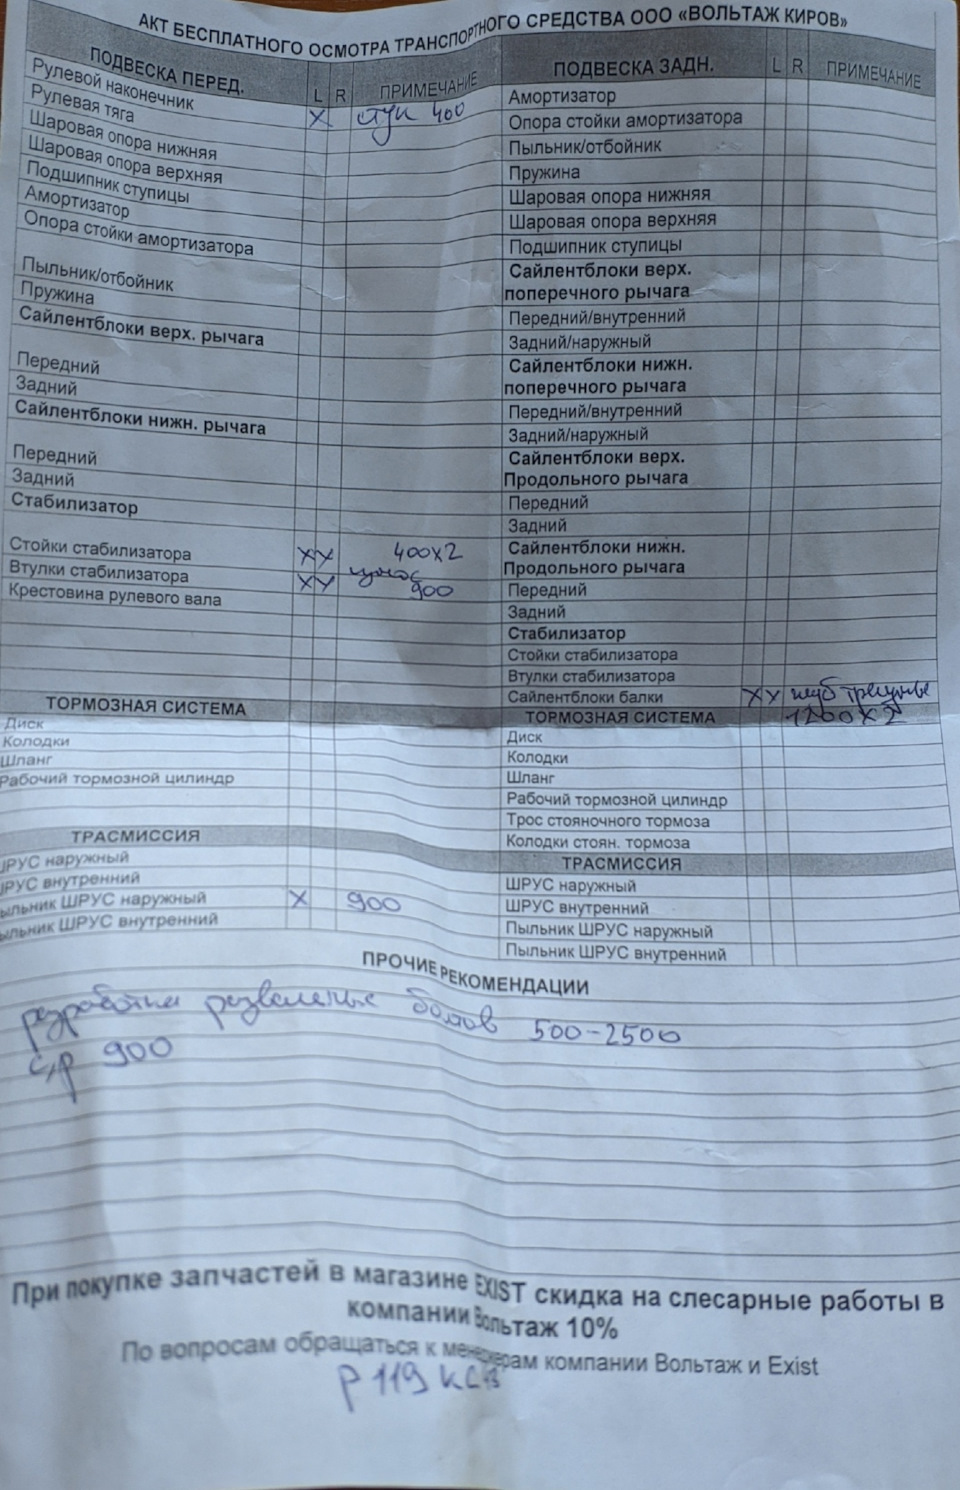 АКТ БЕСПЛАТНОГО ОСМОТРА ТРАНСПОРТНОГО СРЕДСТВА ООО «ВОЛЬТАЖ КИРОВ»
ПОДВЕСКА ПЕРЕД. L R ПРИМЕЧАНИЕ
Рулевой наконечник
Рулевая тяга X стук 400
Шаровая опора нижняя
Шаровая опора верхняя
Подшипник ступицы
Амортизатор
Опора стойки амортизатора
Пыльник/отбойник
Пружина
Сайлентблоки верх. рычага
Передний
Задний
Сайлентблоки нижн. рычага
Передний
Задний
Стабилизатор
Стойки стабилизатора X X 400x2
Втулки стабилизатора X X износ 900
Крестовина рулевого вала
ТОРМОЗНАЯ СИСТЕМА
Диск
Колодки
Шланг
Рабочий тормозной цилиндр
ТРАСМИССИЯ
ШРУС наружный
ШРУС внутренний
Пыльник ШРУС наружный X 900
Пыльник ШРУС внутренний
ПОДВЕСКА ЗАДН. L R ПРИМЕЧАНИЕ
Амортизатор
Опора стойки амортизатора
Пыльник/отбойник
Пружина
Шаровая опора нижняя
Шаровая опора верхняя
Подшипник ступицы
Сайлентблоки верх.
поперечного рычага
Передний/внутренний
Задний/наружный
Сайлентблоки нижн.
поперечного рычага
Передний/внутренний
Задний/наружный
Сайлентблоки верх.
Продольного рычага
Передний
Задний
Сайлентблоки нижн.
Продольного рычага
Передний
Задний
Стабилизатор
Стойки стабилизатора
Втулки стабилизатора
Сайлентблоки балки X X
ТОРМОЗНАЯ СИСТЕМА 1200x2
Диск
Колодки
Шланг
Рабочий тормозной цилиндр
Трос стояночного тормоза
Колодки стоян. тормоза
ТРАСМИССИЯ
ШРУС наружный
ШРУС внутренний
Пыльник ШРУС наружный
Пыльник ШРУС внутренний
ПРОЧИЕ РЕКОМЕНДАЦИИ
разработка развальных болтов 500-2500
с/р 900
При покупке запчастей в магазине EXIST скидка на слесарные работы в
компании Вольтаж 10%
По вопросам обращаться к менеджерам компании Вольтаж и Exist
р 119 КС